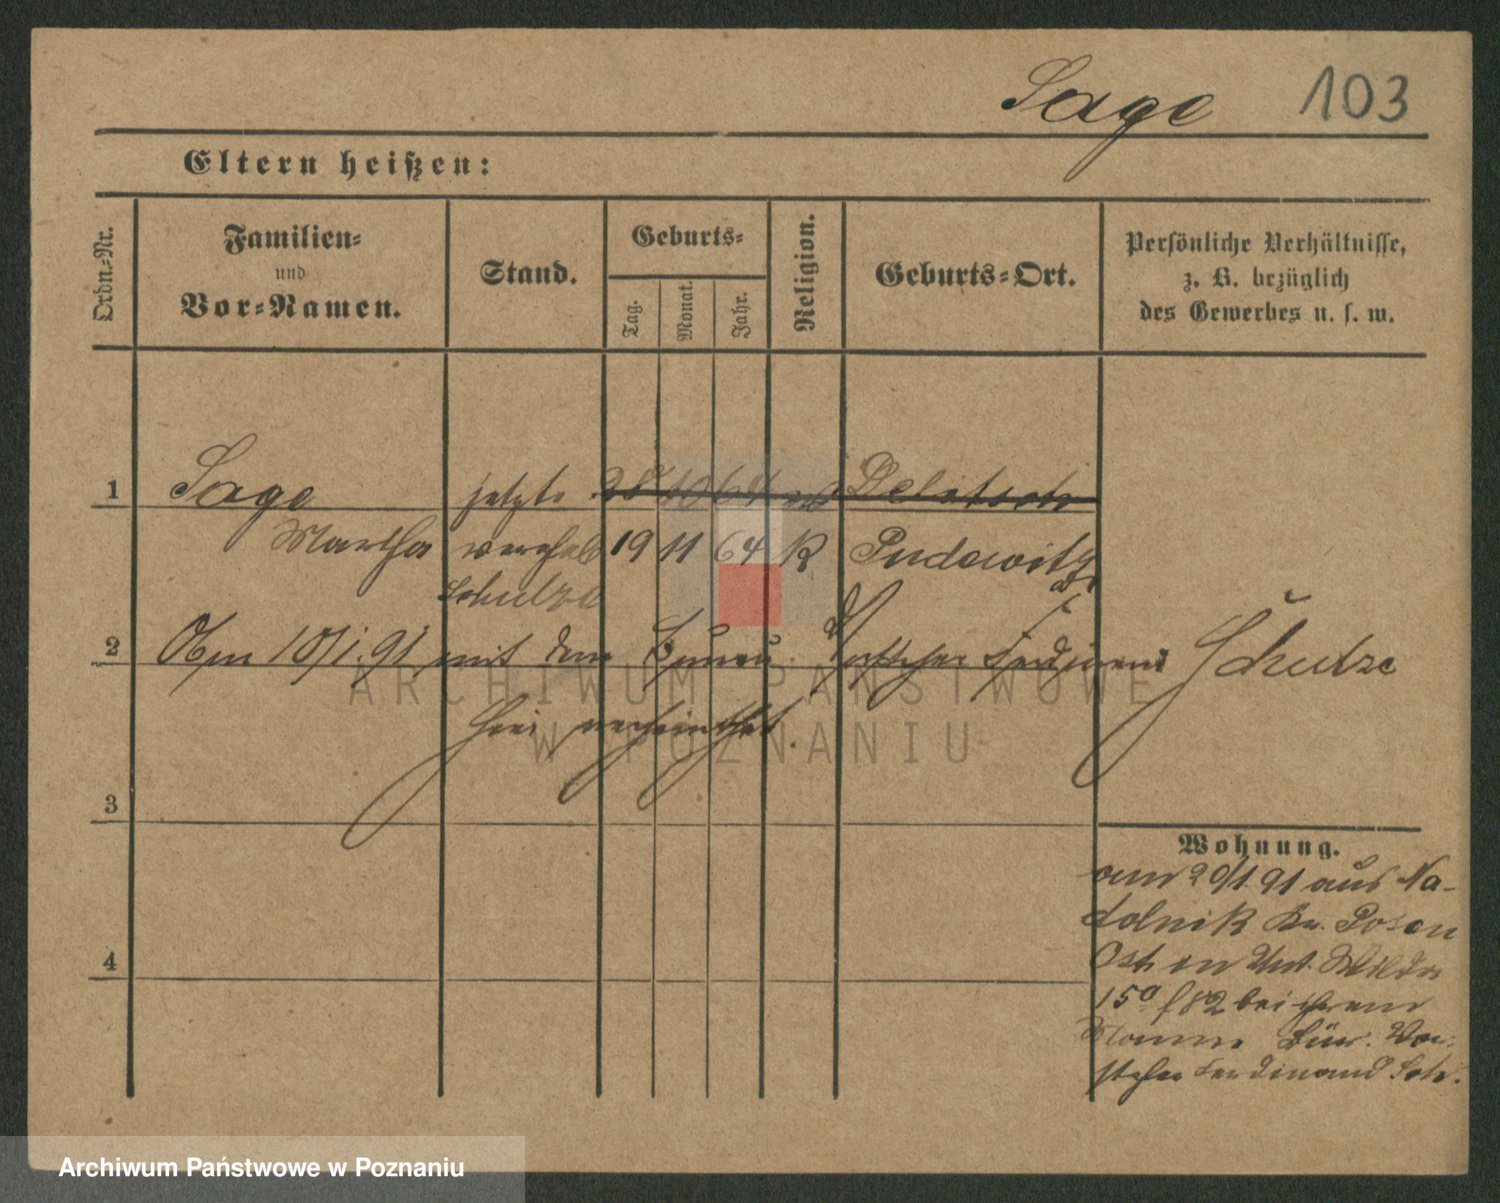 Sage 103
Eltern heißen:
Ordn.-Nr.
Familien-
und
Vor-Namen.
Stand.
Geburts-
Tag.
Monat.
Jahr.
Religion.
Geburts-Ort.
Persönliche Verhältnisse,
z. B. bezüglich
des Gewerbes u. s. w.
1 Sage jetzt 28 10 64 Delitsch
Martha verehel 19 11 64 K Pudewitz
Schulze
2 10/1.91 mit dem Bureau Vorsteher Ferdinand Schulze
hier verheirathet.
3
Wohnung.
am 20/1 91 aus Na-
dolnik Kr. Posen
Ost in Unt. Wilda
15a f 82 bei ihrem
Manne Bür. Vor-
steher Ferdinand Sch.
4
ARCHIWUM PAŃSTWOWE
W POZNANIU
Archiwum Państwowe w Poznaniu